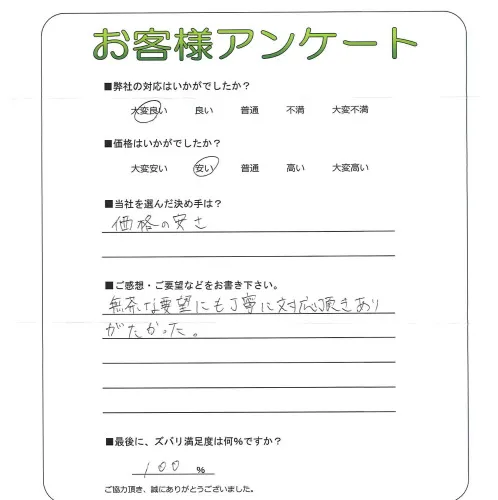 お客様アンケート
■弊社の対応はいかがでしたか？
大変良い 良い 普通 不満 大変不満
■価格はいかがでしたか？
大変安い 安い 普通 高い 大変高い
■当社を選んだ決め手は？
価格の安さ
■ご感想・ご要望などをお書き下さい。
無茶な要望にも丁寧に対応頂きあり
がたかった。
■最後に、ズバリ満足度は何%ですか？
100 %
ご協力頂き、誠にありがとうございました。